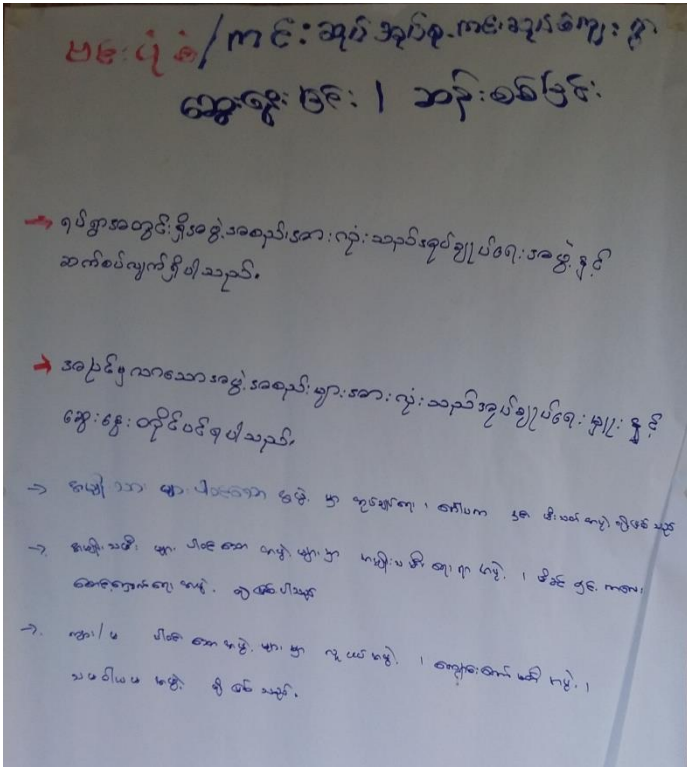 ဗမာပုံစံ / ကင်းဆုပ်အုပ်စု၊ ကင်းဆုပ်ကျေးရွာ
ဆွေးနွေးခြင်း / ဆန်းစစ်ခြင်း
→ ရပ်ရွာအတွင်းရှိအဖွဲ့အစည်းအားလုံးသည်အုပ်ချုပ်ရေးအဖွဲ့နှင့်
ဆက်စပ်လျက်ရှိပါသည်။
→ အပြင်မှလာသောအဖွဲ့အစည်းများအားလုံးသည်အုပ်ချုပ်ရေးမှူးနှင့်
ဆွေးနွေးတိုင်ပင်ရပါသည်။
→ အမျိုးသားများပါဝင်သောအဖွဲ့မှာ အုပ်ချုပ်ရေး ၊ ဂေါပက မီးသတ်အဖွဲ့တို့ဖြစ်သည်
→ အမျိုးသမီးများ ပါဝင်သောအဖွဲ့များမှာ အမျိုးသမီးရေးရာအဖွဲ့ ၊ မိခင်နှင့်ကလေး
စောင့်ရှောက်ရေးအဖွဲ့ တို့ဖြစ်ပါသည်
→ ကျား/မ ပါဝင်သောအဖွဲ့များမှာ လူငယ်အဖွဲ့ ၊ ကျောင်းကော်မတီအဖွဲ့ ၊
သမဝါယမအဖွဲ့ တို့ဖြစ်သည်။